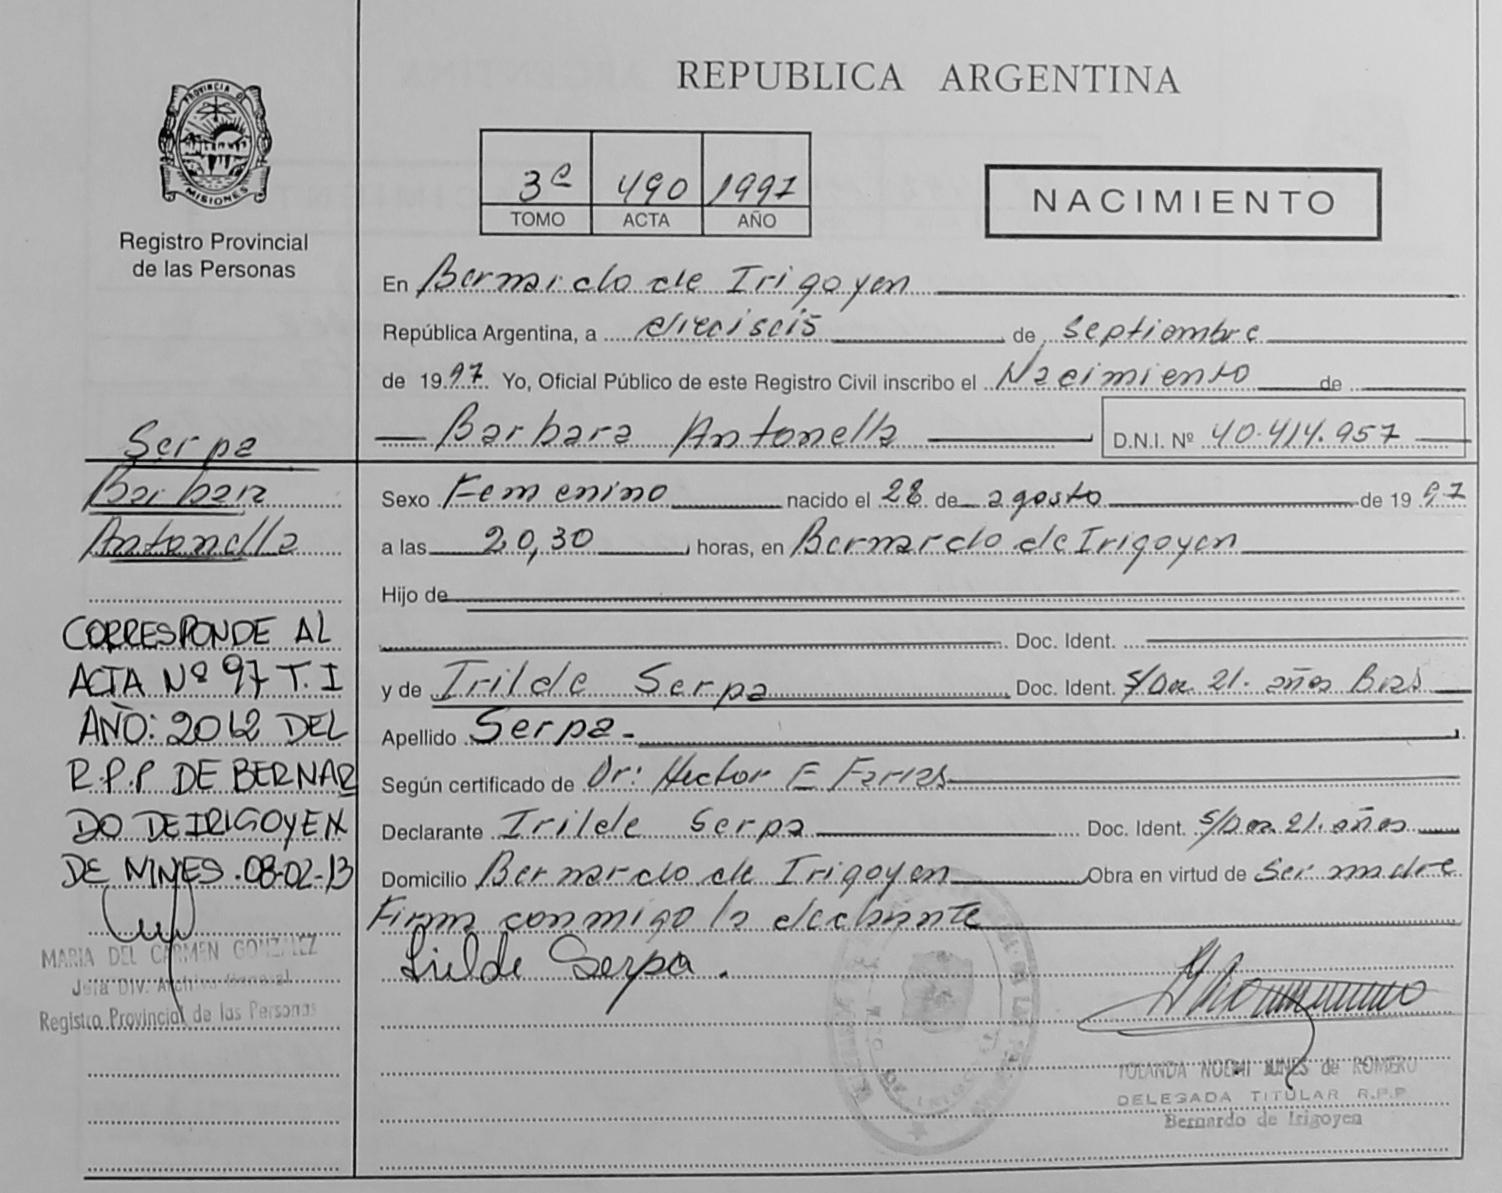 REPUBLICA ARGENTINA
PROVINCIA DE
MISIONES
Registro Provincial
de las Personas
3º 490 1997
TOMO ACTA AÑO
NACIMIENTO
En Bernardo de Irigoyen
República Argentina, a dieciseis de septiembre
de 1997 Yo, Oficial Público de este Registro Civil inscribo el Nacimiento de
Barbara Antonella D.N.I. Nº 40.414.957
Serpa
Barbara
Antonella
CORRESPONDE AL
ACTA Nº 97 T. I
AÑO: 2012 DEL
R.P.P DE BERNAR
DO DE IRIGOYEN
DE MNES. 08-02-13
MARIA DEL CARMEN GONZALEZ
Jefa Div. Archivo General
Registro Provincial de las Personas
Sexo Femenino nacido el 28 de agosto de 1997
a las 20,30 horas, en Bernardo de Irigoyen
Hijo de
Doc. Ident.
y de Irilde Serpa Doc. Ident. S/Doc 21. años Bras
Apellido Serpa-
Según certificado de Dr: Hector E Farias
Declarante Irilde Serpa Doc. Ident. S/Doc 21. años
Domicilio Bernardo de Irigoyen Obra en virtud de Ser madre
Firma conmigo la declarante
Serpa.
YOLANDA NOEMI NUNES de ROMERO
DELEGADA TITULAR R.P.P
Bernardo de Irigoyen